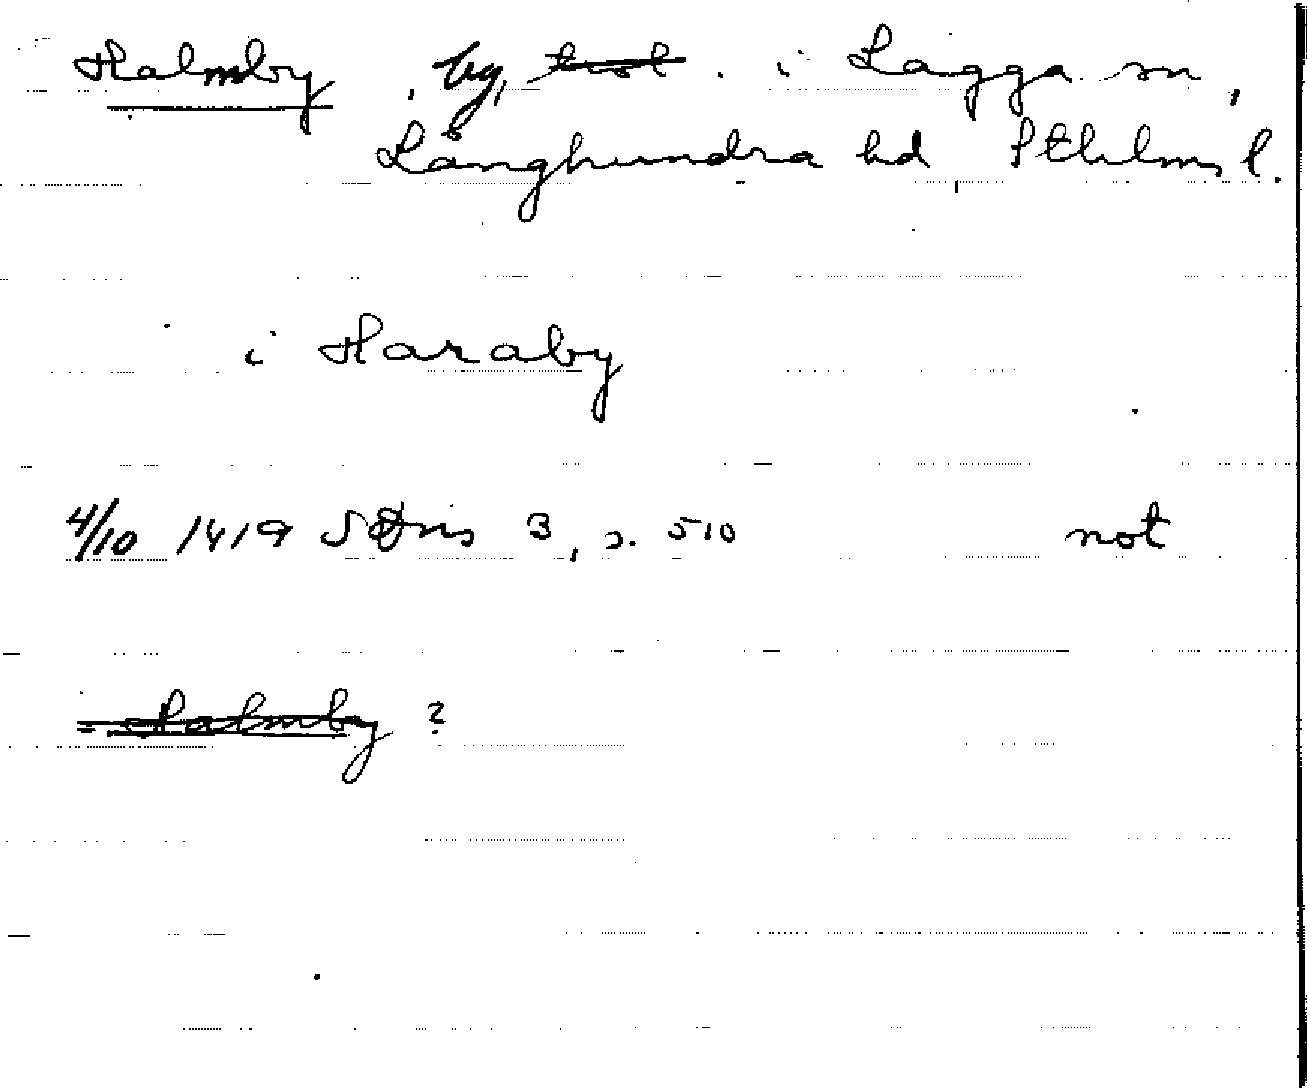 Halmby, by, trol. i Lagga sn,
Långhundra hd Sthlms l.
i Haraby
4/10 1419 SDns 3, s. 510 not
= Halmby ?